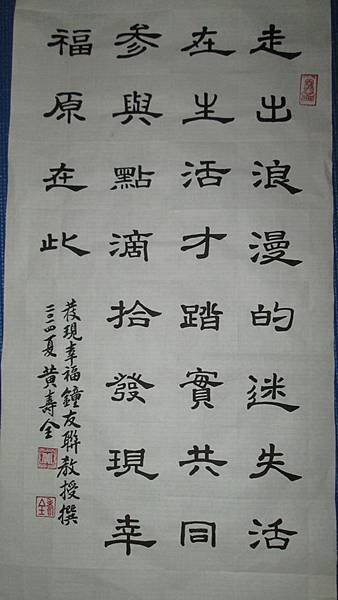 走出浪漫的迷失活
在生活才踏實共同
參與點滴拾發現幸
福原在此
發現幸福鐘友聯教授撰
二〇一四夏黄壽全